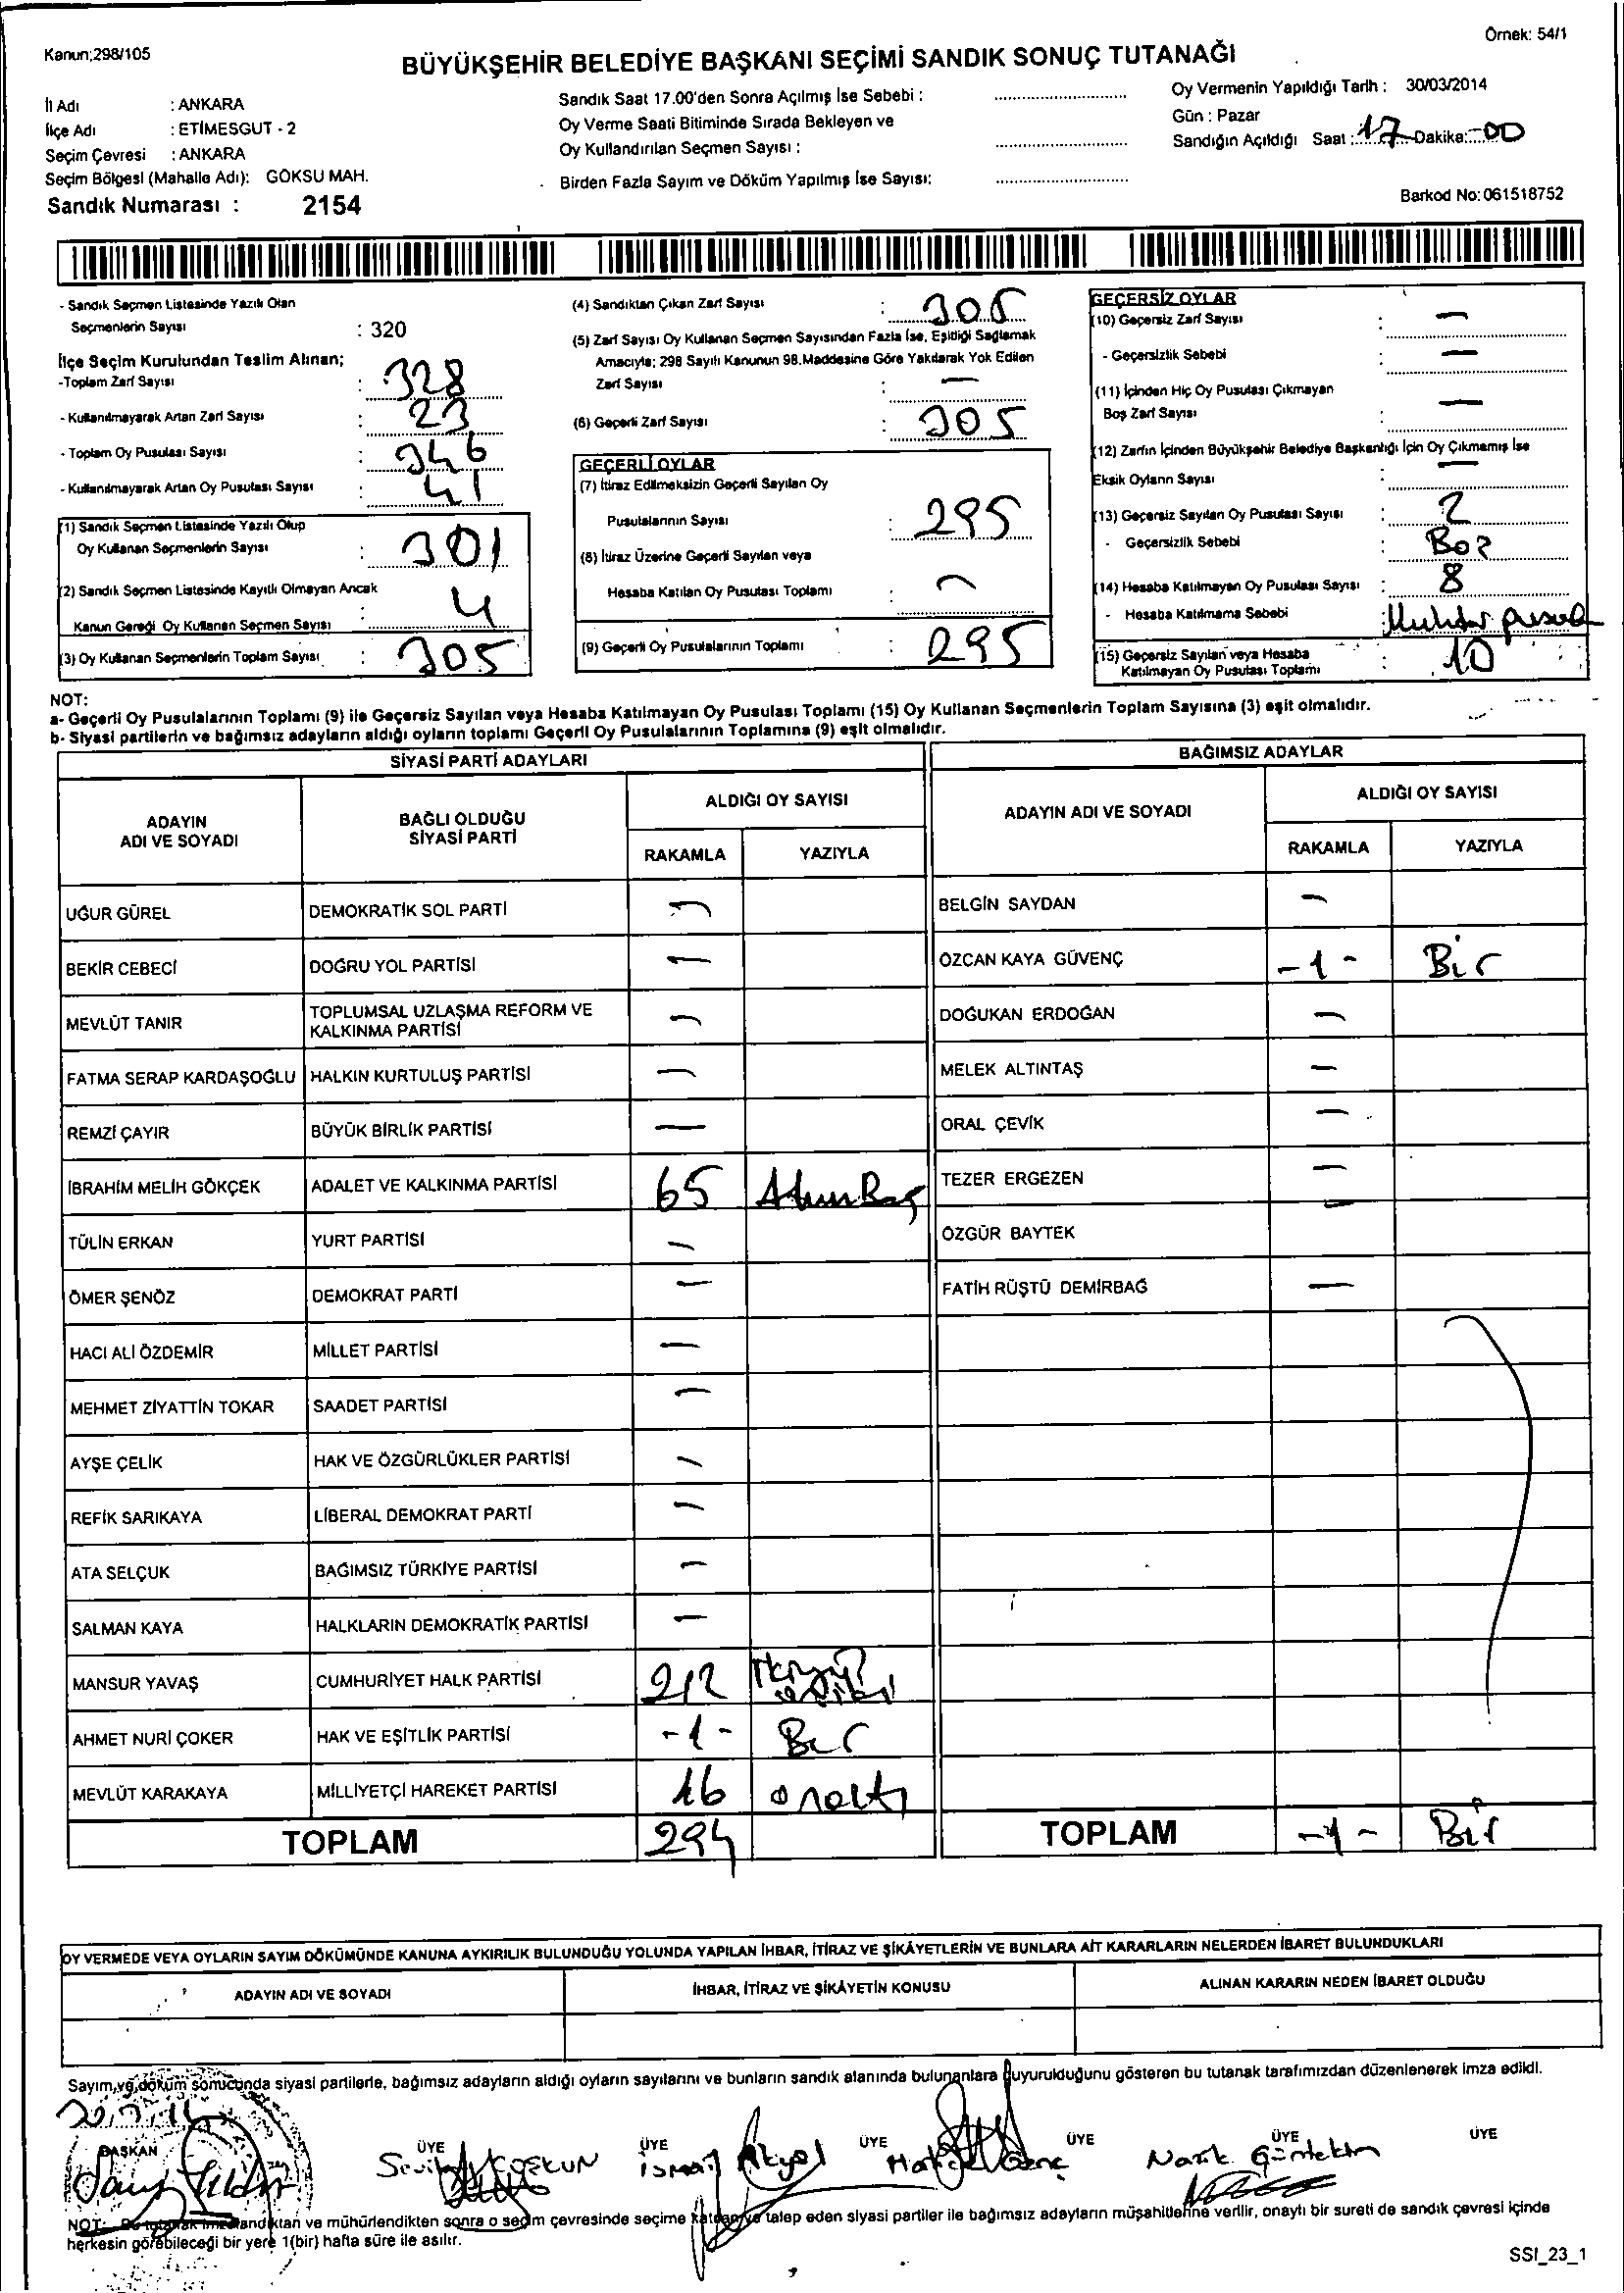 Kanun;298/105
Örnek: 54/1
BÜYÜKŞEHİR BELEDİYE BAŞKANI SEÇİMİ SANDIK SONUÇ TUTANAĞI
İl Adı : ANKARA
İlçe Adı : ETİMESGUT - 2
Seçim Çevresi : ANKARA
Seçim Bölgesi (Mahalle Adı): GÖKSU MAH.
Sandık Numarası : 2154
Sandık Saat 17.00'den Sonra Açılmış İse Sebebi :
Oy Verme Saati Bitiminde Sırada Bekleyen ve
Oy Kullandırılan Seçmen Sayısı :
Birden Fazla Sayım ve Döküm Yapılmış İse Sayısı:
Oy Vermenin Yapıldığı Tarih : 30/03/2014
Gün : Pazar
Sandığın Açıldığı Saat : 17 Dakika: 00
Barkod No: 061518752
- Sandık Seçmen Listesinde Yazılı Olan
Seçmenlerin Sayısı : 320
İlçe Seçim Kurulundan Teslim Alınan;
-Toplam Zarf Sayısı : 328
- Kullanılmayarak Artan Zarf Sayısı : 23
- Toplam Oy Pusulası Sayısı : 346
- Kullanılmayarak Artan Oy Pusulası Sayısı : 41
(1) Sandık Seçmen Listesinde Yazılı Olup
Oy Kullanan Seçmenlerin Sayısı : 301
(2) Sandık Seçmen Listesinde Kayıtlı Olmayan Ancak
Kanun Gereği Oy Kullanan Seçmen Sayısı : 4
(3) Oy Kullanan Seçmenlerin Toplam Sayısı : 305
(4) Sandıktan Çıkan Zarf Sayısı : 305
(5) Zarf Sayısı Oy Kullanan Seçmen Sayısından Fazla İse, Eşitliği Sağlamak
Amacıyla; 298 Sayılı Kanunun 98.Maddesine Göre Yakılarak Yok Edilen
Zarf Sayısı : —
(6) Geçerli Zarf Sayısı : 305
GEÇERLİ OYLAR
(7) İtiraz Edilmeksizin Geçerli Sayılan Oy
Pusulalarının Sayısı : 295
(8) İtiraz Üzerine Geçerli Sayılan veya
Hesaba Katılan Oy Pusulası Toplamı : —
(9) Geçerli Oy Pusulalarının Toplamı : 295
GEÇERSİZ OYLAR
(10) Geçersiz Zarf Sayısı : —
- Geçersizlik Sebebi : —
(11) İçinden Hiç Oy Pusulası Çıkmayan
Boş Zarf Sayısı : —
(12) Zarfın İçinden Büyükşehir Belediye Başkanlığı İçin Oy Çıkmamış İse
Eksik Oyların Sayısı : —
(13) Geçersiz Sayılan Oy Pusulası Sayısı : 2
- Geçersizlik Sebebi : Boş
(14) Hesaba Katılmayan Oy Pusulası Sayısı : 8
- Hesaba Katılmama Sebebi : Muhtar pusula
(15) Geçersiz Sayılan veya Hesaba
Katılmayan Oy Pusulası Toplamı : 10
NOT:
a- Geçerli Oy Pusulalarının Toplamı (9) ile Geçersiz Sayılan veya Hesaba Katılmayan Oy Pusulası Toplamı (15) Oy Kullanan Seçmenlerin Toplam Sayısına (3) eşit olmalıdır.
b- Siyasi partilerin ve bağımsız adayların aldığı oyların toplamı Geçerli Oy Pusulalarının Toplamına (9) eşit olmalıdır.
SİYASİ PARTİ ADAYLARI
ADAYIN ADI VE SOYADI
BAĞLI OLDUĞU SİYASİ PARTİ
ALDIĞI OY SAYISI
RAKAMLA YAZIYLA
UĞUR GÜREL DEMOKRATİK SOL PARTİ —
BEKİR CEBECİ DOĞRU YOL PARTİSİ —
MEVLÜT TANIR TOPLUMSAL UZLAŞMA REFORM VE KALKINMA PARTİSİ —
FATMA SERAP KARDAŞOĞLU HALKIN KURTULUŞ PARTİSİ —
REMZİ ÇAYIR BÜYÜK BİRLİK PARTİSİ —
İBRAHİM MELİH GÖKÇEK ADALET VE KALKINMA PARTİSİ 65 Atmış Beş
TÜLİN ERKAN YURT PARTİSİ —
ÖMER ŞENÖZ DEMOKRAT PARTİ —
HACI ALİ ÖZDEMİR MİLLET PARTİSİ —
MEHMET ZİYATTİN TOKAR SAADET PARTİSİ —
AYŞE ÇELİK HAK VE ÖZGÜRLÜKLER PARTİSİ —
REFİK SARIKAYA LİBERAL DEMOKRAT PARTİ —
ATA SELÇUK BAĞIMSIZ TÜRKİYE PARTİSİ —
SALMAN KAYA HALKLARIN DEMOKRATİK PARTİSİ —
MANSUR YAVAŞ CUMHURİYET HALK PARTİSİ 212
AHMET NURİ ÇOKER HAK VE EŞİTLİK PARTİSİ -1- Bir
MEVLÜT KARAKAYA MİLLİYETÇİ HAREKET PARTİSİ 16 onaltı
TOPLAM 294
BAĞIMSIZ ADAYLAR
ADAYIN ADI VE SOYADI
ALDIĞI OY SAYISI
RAKAMLA YAZIYLA
BELGİN SAYDAN —
ÖZCAN KAYA GÜVENÇ -1- Bir
DOĞUKAN ERDOĞAN —
MELEK ALTINTAŞ —
ORAL ÇEVİK —
TEZER ERGEZEN —
ÖZGÜR BAYTEK —
FATİH RÜŞTÜ DEMİRBAĞ —
TOPLAM -1- Bir
OY VERMEDE VEYA OYLARIN SAYIM DÖKÜMÜNDE KANUNA AYKIRILIK BULUNDUĞU YOLUNDA YAPILAN İHBAR, İTİRAZ VE ŞİKÂYETLERİN VE BUNLARA AİT KARARLARIN NELERDEN İBARET BULUNDUKLARI
ADAYIN ADI VE SOYADI
İHBAR, İTİRAZ VE ŞİKÂYETİN KONUSU
ALINAN KARARIN NEDEN İBARET OLDUĞU
Sayım ve döküm sonucunda siyasi partilerle, bağımsız adayların aldığı oyların sayılarını ve bunların sandık alanında bulunanlara duyurulduğunu gösteren bu tutanak tarafımızdan düzenlenerek imza edildi.
BAŞKAN ÜYE ÜYE ÜYE ÜYE ÜYE ÜYE
COŞKUN İsmail Akyol Genç Nazik Güntekin
NOT: Bu tutanak imzalandıktan ve mühürlendikten sonra o seçim çevresinde seçime katılan ve talep eden siyasi partiler ile bağımsız adayların müşahitlerine verilir, onaylı bir sureti de sandık çevresi içinde
herkesin görebileceği bir yere 1(bir) hafta süre ile asılır.
SSI_23_1